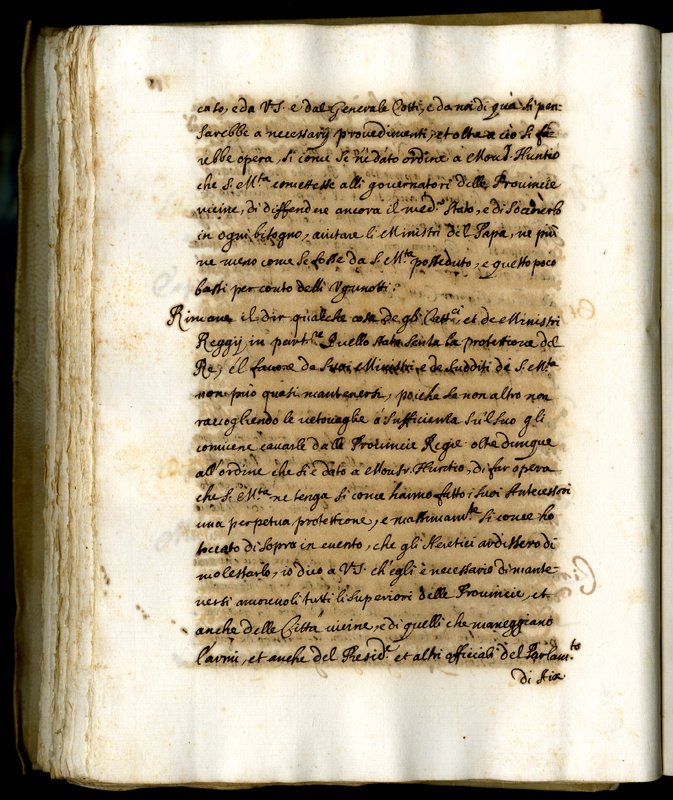 caso, e da V.S. e dal Generale Cotti, e da noi di quà si pen-
sarebbe a necessarij prouedimenti, et oltre a ciò si fa-
rebbe opera, si come se n'è dato ordine a Mons.r Huntio
che S. M.ta comettesse alli gouernatori delle Prouincie
uicine, di diffendere ancora il med.o stato, e di soccorerlo
in ogni bisogno, aiutare li Ministri del Papa, ne più
ne meno come se fosse da S. M.ta posseduto, e questo poco
basti per conto delli Vgunotti.
Rimane il dir qualche cosa de gli Catt.ci, et de Ministri
Reggij, in part.re Quello stato senza la protettione del
Re, el fauore de suoi Ministri e de sudditi de S. M.ta
non può quasi mantenersi, poiche se non altro non
raccogliendo le uetouaglie à sufficienza su'l suo gli
conuiene cauarle dalle Prouincie Regie. oltre dunque
all'ordine che si è dato a Mons.r Huntio, di far opera
che S. M.ta ne tenga si come hanno fatto i suoi Antecessori
una perpetua protettione, e massimam.te si come ho
toccato di sopra in euento, che gli Heretici ardissero di
molestarlo, io dico a V.S. ch'egli è necessario di mante-
nersi amoreuoli tutti li superiori delle Prouincie, et
anche delle Città uicine, e di quelli che maneggiano
l'armi, et anche del Presid.te et altri officiali del Parlam.to
di Aix